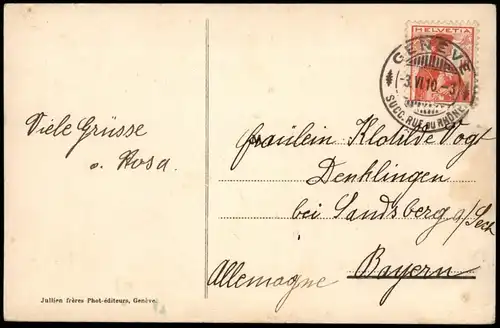 HELVETIA
GENÈVE
-3.VI.10.-3
SUCC. RUE DU RHÔNE
Viele Grüsse
s. Rosa.
Fräulein Klotilde Vogt
Denklingen
bei Landsberg a/Lech
Bayern
Allemagne
Jullien frères Phot-éditeurs, Genève.